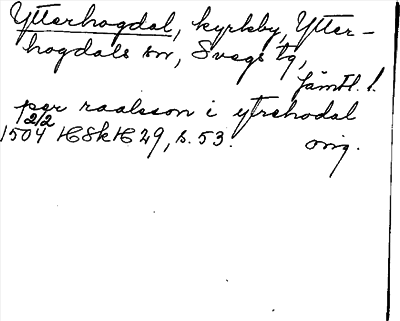 Ytterhogdal, kyrkby, Ytter-
hogdals sn, Svegs tg,
Jämtl. l.
per raalsson i ytrehodal
1504 2/2 HSkH 29, s. 53. orig.